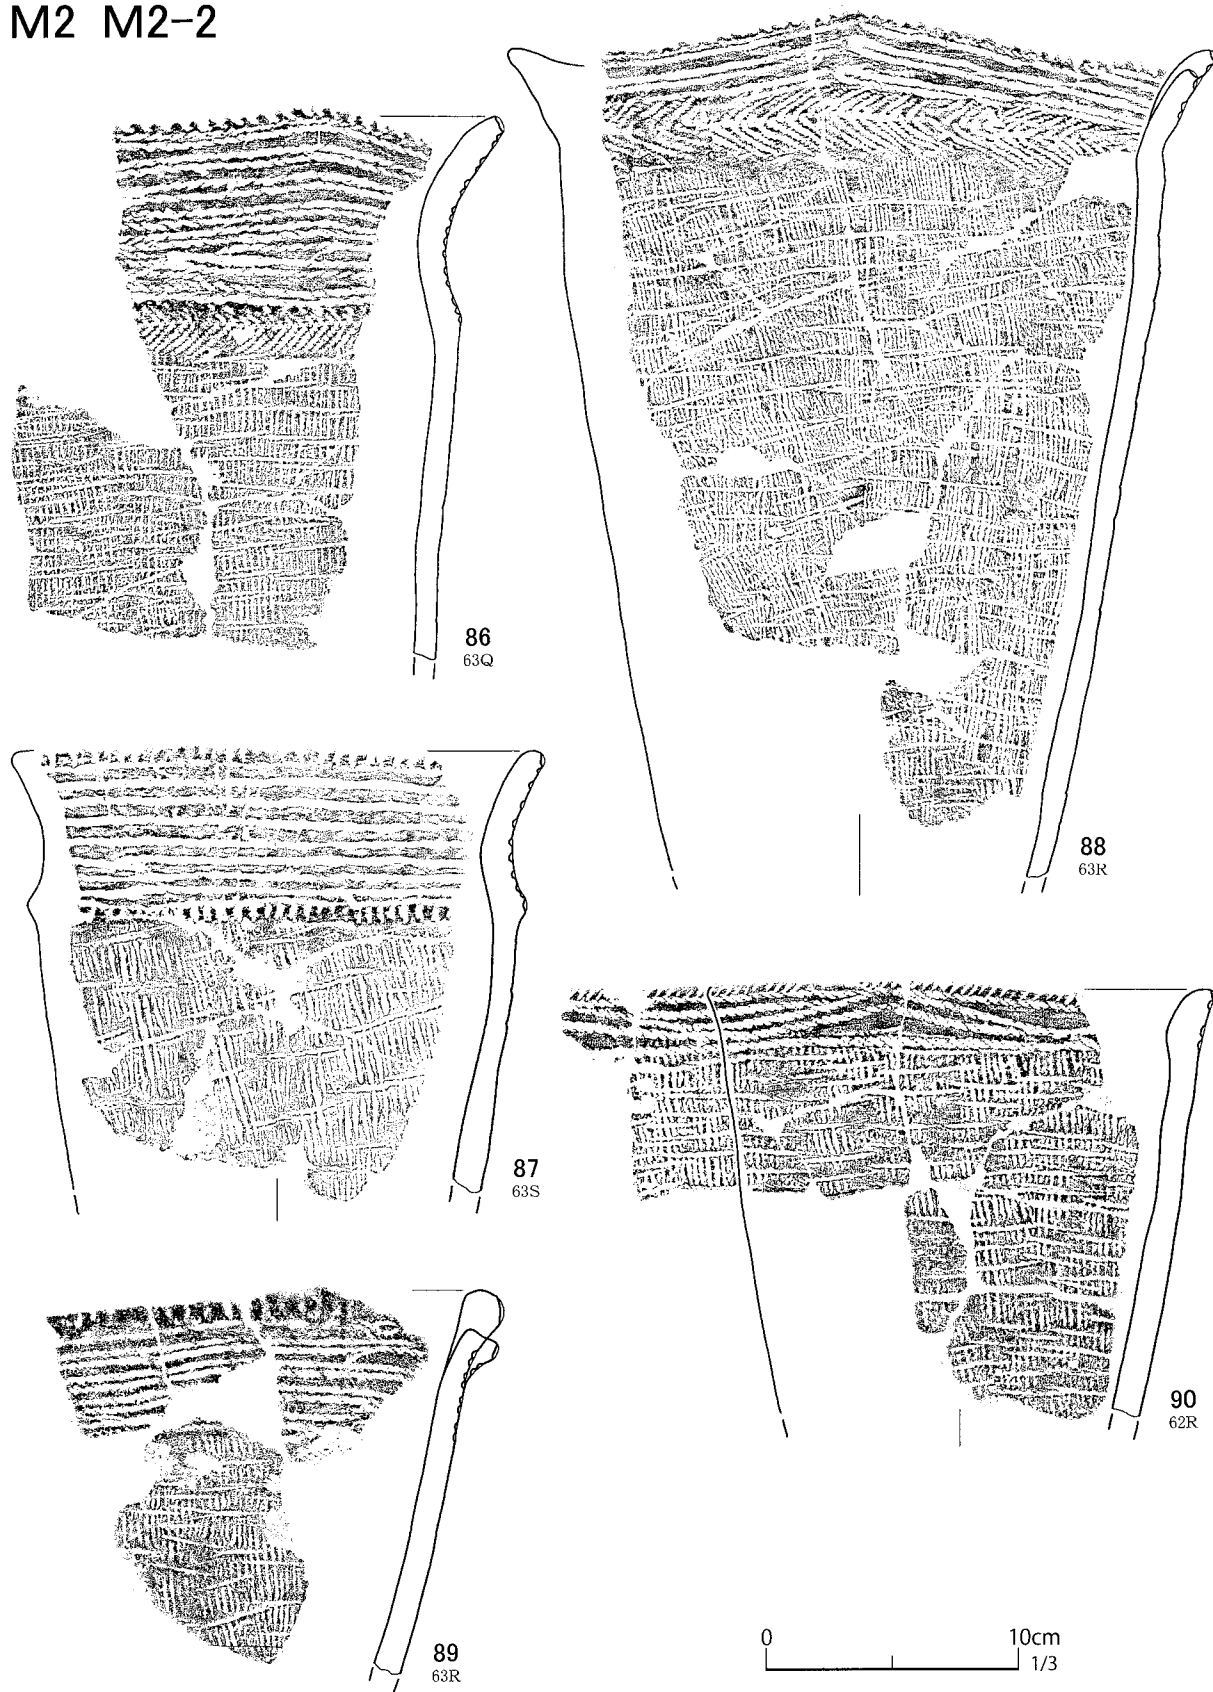 M2 M2-2
86
63Q
88
63R
87
63S
90
62R
89
63R
0 10cm
1/3